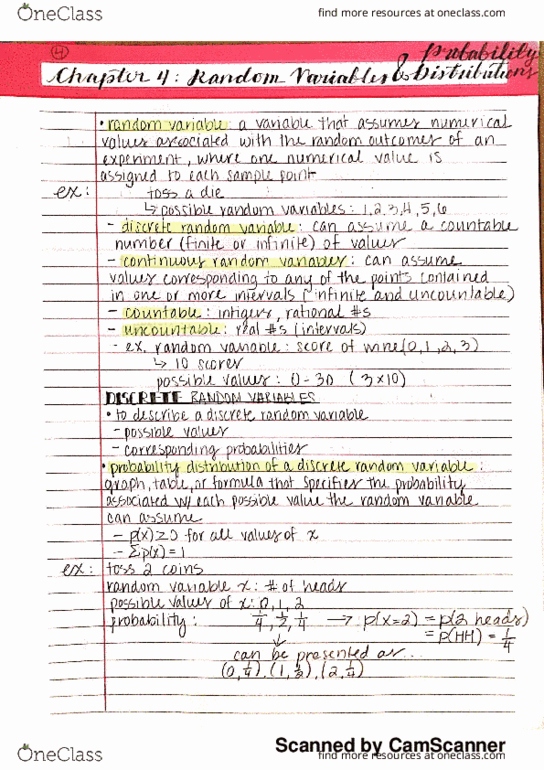 OneClass
find more resources at oneclass.com
4
Probability
Chapter 4: Random Variables & Distributions
• random variable: a variable that assumes numerical
values associated with the random outcomes of an
experiment, where one numerical value is
assigned to each sample point
ex: toss a die
↳ possible random variables: 1,2,3,4,5,6
- discrete random variable: can assume a countable
number (finite or infinite) of values
- continuous random variables: can assume
values corresponding to any of the points contained
in one or more intervals (infinite and uncountable)
- countable: intigers, rational #s
- uncountable: real #s (intervals)
- ex. random variable: score of mne(0,1,2,3)
↳ 10 scores
possible values: 0-30 (3×10)
DISCRETE RANDOM VARIABLES
• to describe a discrete random variable
- possible values
- corresponding probabilities
• probability distribution of a discrete random variable:
graph, table, or formula that specifies the probability
associated w/ each possible value the random variable
can assume
- p(x)≥0 for all values of x
- Σp(x)=1
ex: toss 2 coins
random variable x: # of heads
possible values of x: 0,1,2
probability: 1/4, 1/2, 1/4 → p(x=2) = p(2 heads)
= p(HH) = 1/4
↓
can be presented as...
(0,1/4),(1,1/2),(2,1/4)
Scanned by CamScanner
OneClass
find more resources at oneclass.com